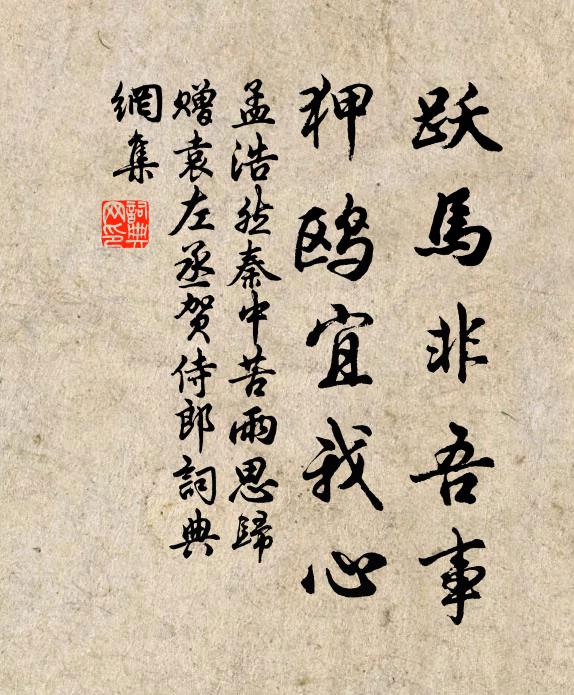 跃馬非吾事
狎鸥宜我心
孟浩然秦中苦雨思歸
赠袁左丞贺侍郎詞典
網集
詞典網印